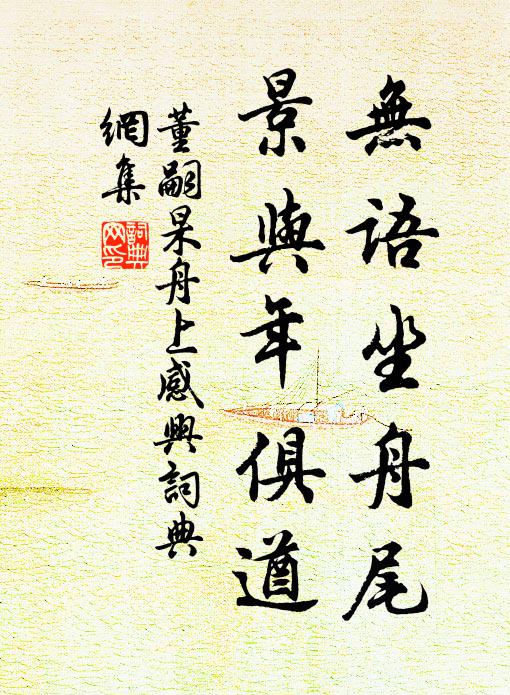 無語坐舟尾
景與年俱遒
董嗣杲舟上感興詞典
網集
詞典
网印